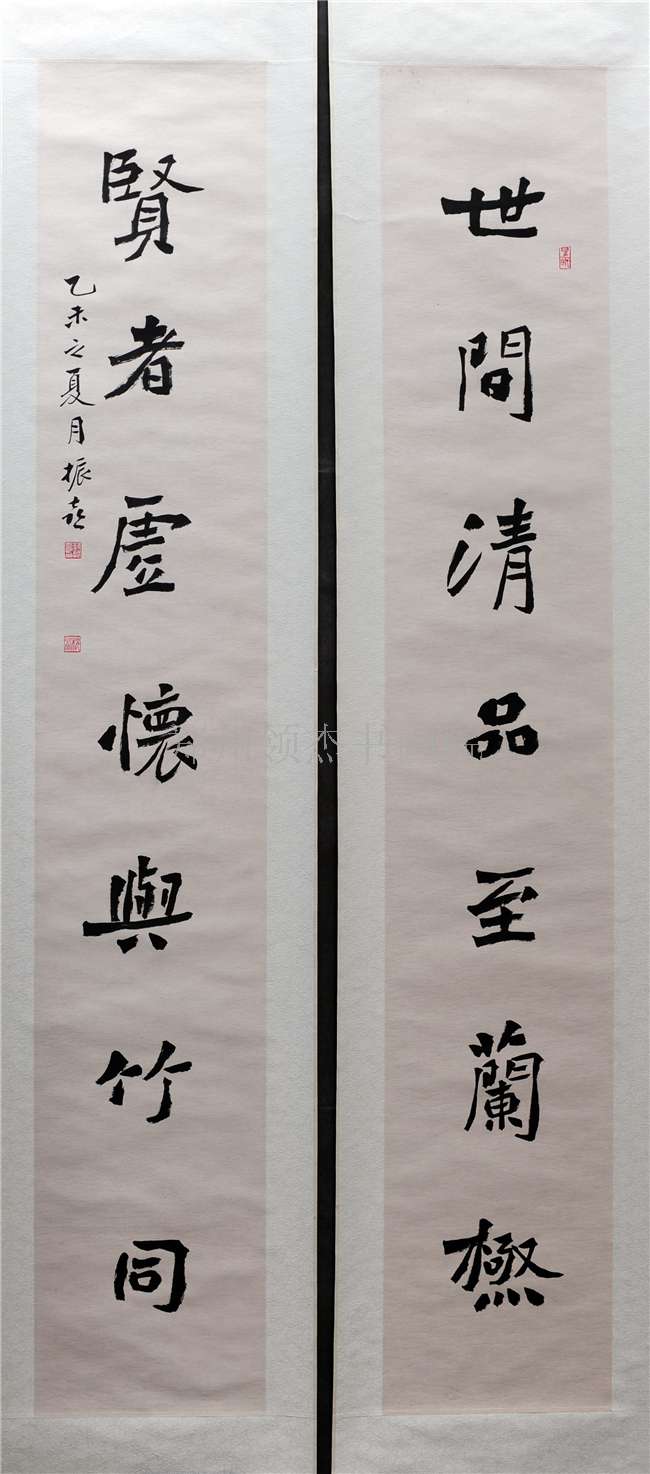 世間清品至蘭極
賢者虛懷與竹同
乙未之夏月振
颂杰书